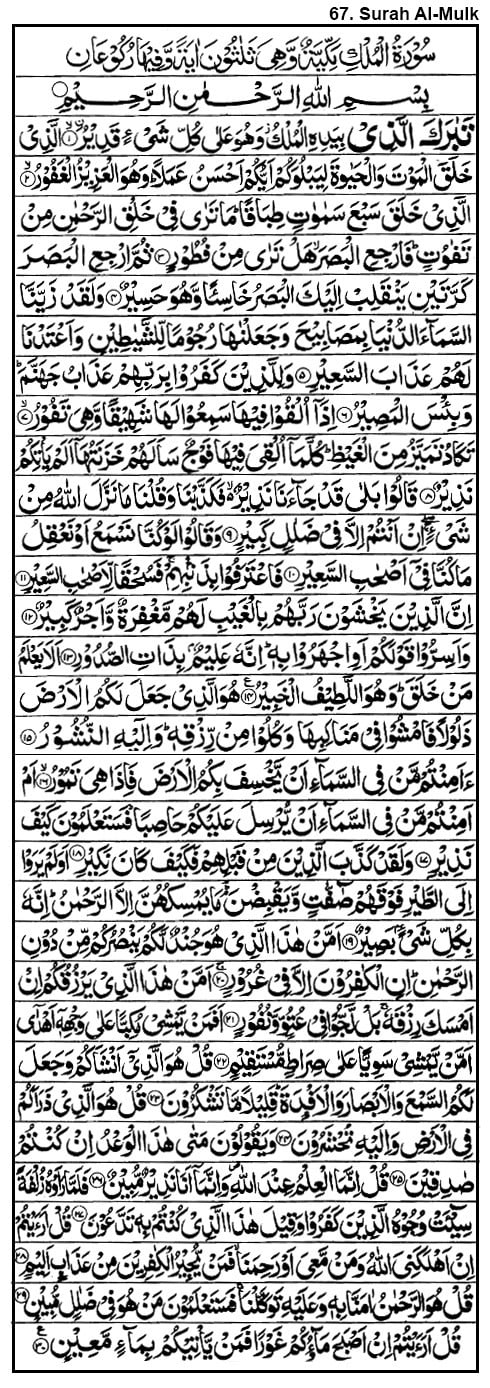 67. Surah Al-Mulk
سُوْرَةُ الْمُلْكِ مَكِّيَّةٌ وَّهِيَ ثَلٰثُوْنَ اٰيَةً وَّفِيْهَا رُكُوْعَانِ
بِسْمِ اللّٰهِ الرَّحْمٰنِ الرَّحِيْمِ
تَبٰرَكَ الَّذِيْ بِيَدِهِ الْمُلْكُ وَهُوَ عَلٰى كُلِّ شَيْءٍ قَدِيْرُ ۙ﴿۱﴾ الَّذِيْ
خَلَقَ الْمَوْتَ وَالْحَيٰوةَ لِيَبْلُوَكُمْ اَيُّكُمْ اَحْسَنُ عَمَلًا ؕ وَهُوَ الْعَزِيْزُ الْغَفُوْرُ ۙ﴿۲﴾
الَّذِيْ خَلَقَ سَبْعَ سَمٰوٰتٍ طِبَاقًا ؕ مَا تَرٰى فِيْ خَلْقِ الرَّحْمٰنِ مِنْ
تَفٰوُتٍ ؕ فَارْجِعِ الْبَصَرَ ۙ هَلْ تَرٰى مِنْ فُطُوْرٍ ﴿۳﴾ ثُمَّ ارْجِعِ الْبَصَرَ
كَرَّتَيْنِ يَنْقَلِبْ اِلَيْكَ الْبَصَرُ خَاسِئًا وَّهُوَ حَسِيْرٌ ﴿۴﴾ وَلَقَدْ زَيَّنَّا
السَّمَآءَ الدُّنْيَا بِمَصَابِيْحَ وَجَعَلْنٰهَا رُجُوْمًا لِّلشَّيٰطِيْنِ وَاَعْتَدْنَا
لَهُمْ عَذَابَ السَّعِيْرِ ﴿۵﴾ وَلِلَّذِيْنَ كَفَرُوْا بِرَبِّهِمْ عَذَابُ جَهَنَّمَ ؕ
وَبِئْسَ الْمَصِيْرُ ﴿۶﴾ اِذَاۤ اُلْقُوْا فِيْهَا سَمِعُوْا لَهَا شَهِيْقًا وَّهِيَ تَفُوْرُ ۙ﴿۷﴾
تَكَادُ تَمَيَّزُ مِنَ الْغَيْظِ ؕ كُلَّمَاۤ اُلْقِيَ فِيْهَا فَوْجٌ سَاَلَهُمْ خَزَنَتُهَاۤ اَلَمْ يَاْتِكُمْ
نَذِيْرٌ ﴿۸﴾ قَالُوْا بَلٰى قَدْ جَآءَنَا نَذِيْرٌ ۙ فَكَذَّبْنَا وَقُلْنَا مَا نَزَّلَ اللّٰهُ مِنْ
شَيْءٍ ۚۖ اِنْ اَنْتُمْ اِلَّا فِيْ ضَلٰلٍ كَبِيْرٍ ﴿۹﴾ وَقَالُوْا لَوْ كُنَّا نَسْمَعُ اَوْ نَعْقِلُ
مَا كُنَّا فِيْۤ اَصْحٰبِ السَّعِيْرِ ﴿۱۰﴾ فَاعْتَرَفُوْا بِذَنْۢبِهِمْ ۚ فَسُحْقًا لِّاَصْحٰبِ السَّعِيْرِ ﴿۱۱﴾
اِنَّ الَّذِيْنَ يَخْشَوْنَ رَبَّهُمْ بِالْغَيْبِ لَهُمْ مَّغْفِرَةٌ وَّاَجْرٌ كَبِيْرٌ ﴿۱۲﴾
وَاَسِرُّوْا قَوْلَكُمْ اَوِ اجْهَرُوْا بِهٖ ؕ اِنَّهٗ عَلِيْمٌۢ بِذَاتِ الصُّدُوْرِ ﴿۱۳﴾ اَلَا يَعْلَمُ
مَنْ خَلَقَ ؕ وَهُوَ اللَّطِيْفُ الْخَبِيْرُ ﴿۱۴﴾ هُوَ الَّذِيْ جَعَلَ لَكُمُ الْاَرْضَ
ذَلُوْلًا فَامْشُوْا فِيْ مَنَاكِبِهَا وَكُلُوْا مِنْ رِّزْقِهٖ ؕ وَاِلَيْهِ النُّشُوْرُ ﴿۱۵﴾
ءَاَمِنْتُمْ مَّنْ فِي السَّمَآءِ اَنْ يَّخْسِفَ بِكُمُ الْاَرْضَ فَاِذَا هِيَ تَمُوْرُ ۙ﴿۱۶﴾ اَمْ
اَمِنْتُمْ مَّنْ فِي السَّمَآءِ اَنْ يُّرْسِلَ عَلَيْكُمْ حَاصِبًا ؕ فَسَتَعْلَمُوْنَ كَيْفَ
نَذِيْرِ ﴿۱۷﴾ وَلَقَدْ كَذَّبَ الَّذِيْنَ مِنْ قَبْلِهِمْ فَكَيْفَ كَانَ نَكِيْرِ ﴿۱۸﴾ اَوَلَمْ يَرَوْا
اِلَى الطَّيْرِ فَوْقَهُمْ صٰٓفّٰتٍ وَّيَقْبِضْنَ ؔۘ مَا يُمْسِكُهُنَّ اِلَّا الرَّحْمٰنُ ؕ اِنَّهٗ
بِكُلِّ شَيْءٍۢ بَصِيْرٌ ﴿۱۹﴾ اَمَّنْ هٰذَا الَّذِيْ هُوَ جُنْدٌ لَّكُمْ يَنْصُرُكُمْ مِّنْ دُوْنِ
الرَّحْمٰنِ ؕ اِنِ الْكٰفِرُوْنَ اِلَّا فِيْ غُرُوْرٍ ۚ﴿۲۰﴾ اَمَّنْ هٰذَا الَّذِيْ يَرْزُقُكُمْ اِنْ
اَمْسَكَ رِزْقَهٗ ۚ بَلْ لَّجُّوْا فِيْ عُتُوٍّ وَّنُفُوْرٍ ﴿۲۱﴾ اَفَمَنْ يَّمْشِيْ مُكِبًّا عَلٰى وَجْهِهٖۤ اَهْدٰۤى
اَمَّنْ يَّمْشِيْ سَوِيًّا عَلٰى صِرَاطٍ مُّسْتَقِيْمٍ ﴿۲۲﴾ قُلْ هُوَ الَّذِيْۤ اَنْشَاَكُمْ وَجَعَلَ
لَكُمُ السَّمْعَ وَالْاَبْصَارَ وَالْاَفْـِٕدَةَ ؕ قَلِيْلًا مَّا تَشْكُرُوْنَ ﴿۲۳﴾ قُلْ هُوَ الَّذِيْ ذَرَاَكُمْ
فِي الْاَرْضِ وَاِلَيْهِ تُحْشَرُوْنَ ﴿۲۴﴾ وَيَقُوْلُوْنَ مَتٰى هٰذَا الْوَعْدُ اِنْ كُنْتُمْ
صٰدِقِيْنَ ﴿۲۵﴾ قُلْ اِنَّمَا الْعِلْمُ عِنْدَ اللّٰهِ ۪ وَاِنَّمَاۤ اَنَا نَذِيْرٌ مُّبِيْنٌ ﴿۲۶﴾ فَلَمَّا رَاَوْهُ زُلْفَةً
سِيْٓـَٔتْ وُجُوْهُ الَّذِيْنَ كَفَرُوْا وَقِيْلَ هٰذَا الَّذِيْ كُنْتُمْ بِهٖ تَدَّعُوْنَ ﴿۲۷﴾ قُلْ اَرَءَيْتُمْ
اِنْ اَهْلَكَنِيَ اللّٰهُ وَمَنْ مَّعِيَ اَوْ رَحِمَنَا ۙ فَمَنْ يُّجِيْرُ الْكٰفِرِيْنَ مِنْ عَذَابٍ اَلِيْمٍ ﴿۲۸﴾
قُلْ هُوَ الرَّحْمٰنُ اٰمَنَّا بِهٖ وَعَلَيْهِ تَوَكَّلْنَا ۚ فَسَتَعْلَمُوْنَ مَنْ هُوَ فِيْ ضَلٰلٍ مُّبِيْنٍ ﴿۲۹﴾
قُلْ اَرَءَيْتُمْ اِنْ اَصْبَحَ مَآؤُكُمْ غَوْرًا فَمَنْ يَّاْتِيْكُمْ بِمَآءٍ مَّعِيْنٍ ﴿۳۰﴾